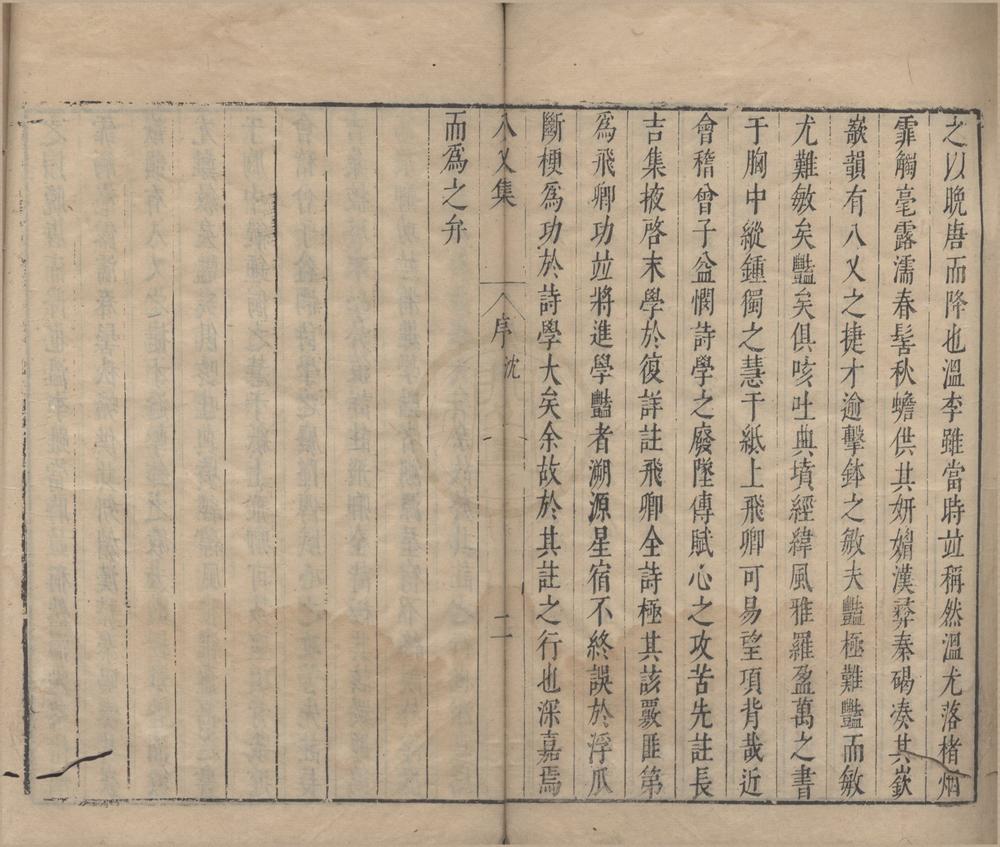 之以晚唐而降也溫李雖當時竝稱然溫尤落楮烟
霏觸毫露濡春髻秋蟾供其妍媚漢彝秦碣湊其嶔
嶔韻有八乂之捷才逾擊鉢之敏夫豔極難豔而敏
尤難敏矣豔矣俱咳吐典墳經緯風雅羅盈萬之書
于胸中縱鍾獨之慧于紙上飛卿可易望項背哉近
會稽曾子益憫詩學之廢墜傳賦心之攻苦先註長
吉集掖啓末學於復詳註飛卿全詩極其該覈匪第
為飛卿功竝將進學豔者溯源星宿不終誤於浮瓜
斷梗為功於詩學大矣余故於其註之行也深嘉焉
八乂集 序沈 二
而為之弁